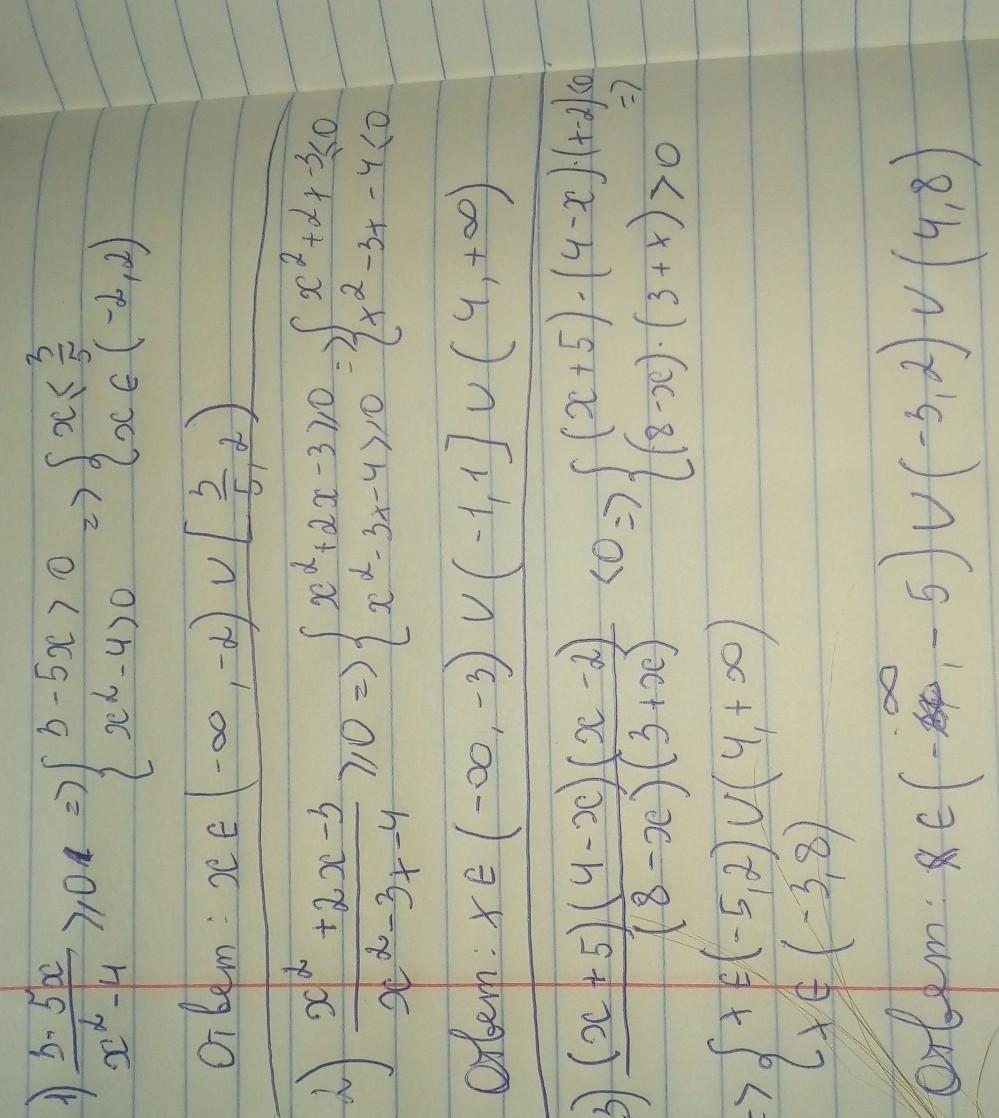 1) (3-5x)/(x²-4) ⩾ 0 => { 3-5x > 0 => { x ⩽ 3/5
{ x²-4 > 0 { x ∈ (-2, 2)
Ответ: x ∈ (-∞, -2) ∪ [3/5, 2)
2) (x²+2x-3)/(x²-3x-4) ⩾ 0 => { x²+2x-3 ⩾ 0 => { x²+2x-3 ⩽ 0
{ x²-3x-4 ⩾ 0 { x²-3x-4 < 0
Ответ: x ∈ (-∞, -3) ∪ (-1, 1] ∪ (4, +∞)
3) (x+5)(4-x)(x-2)/(8-x)(3+x) < 0 => { (x+5)·(4-x)·(x-2) < 0 =>
{ (8-x)·(3+x) > 0
=> { x ∈ (-5, 2) ∪ (4, +∞)
{ x ∈ (-3, 8)
Ответ: x ∈ (-∞, -5) ∪ (-3, 2) ∪ (4, 8)